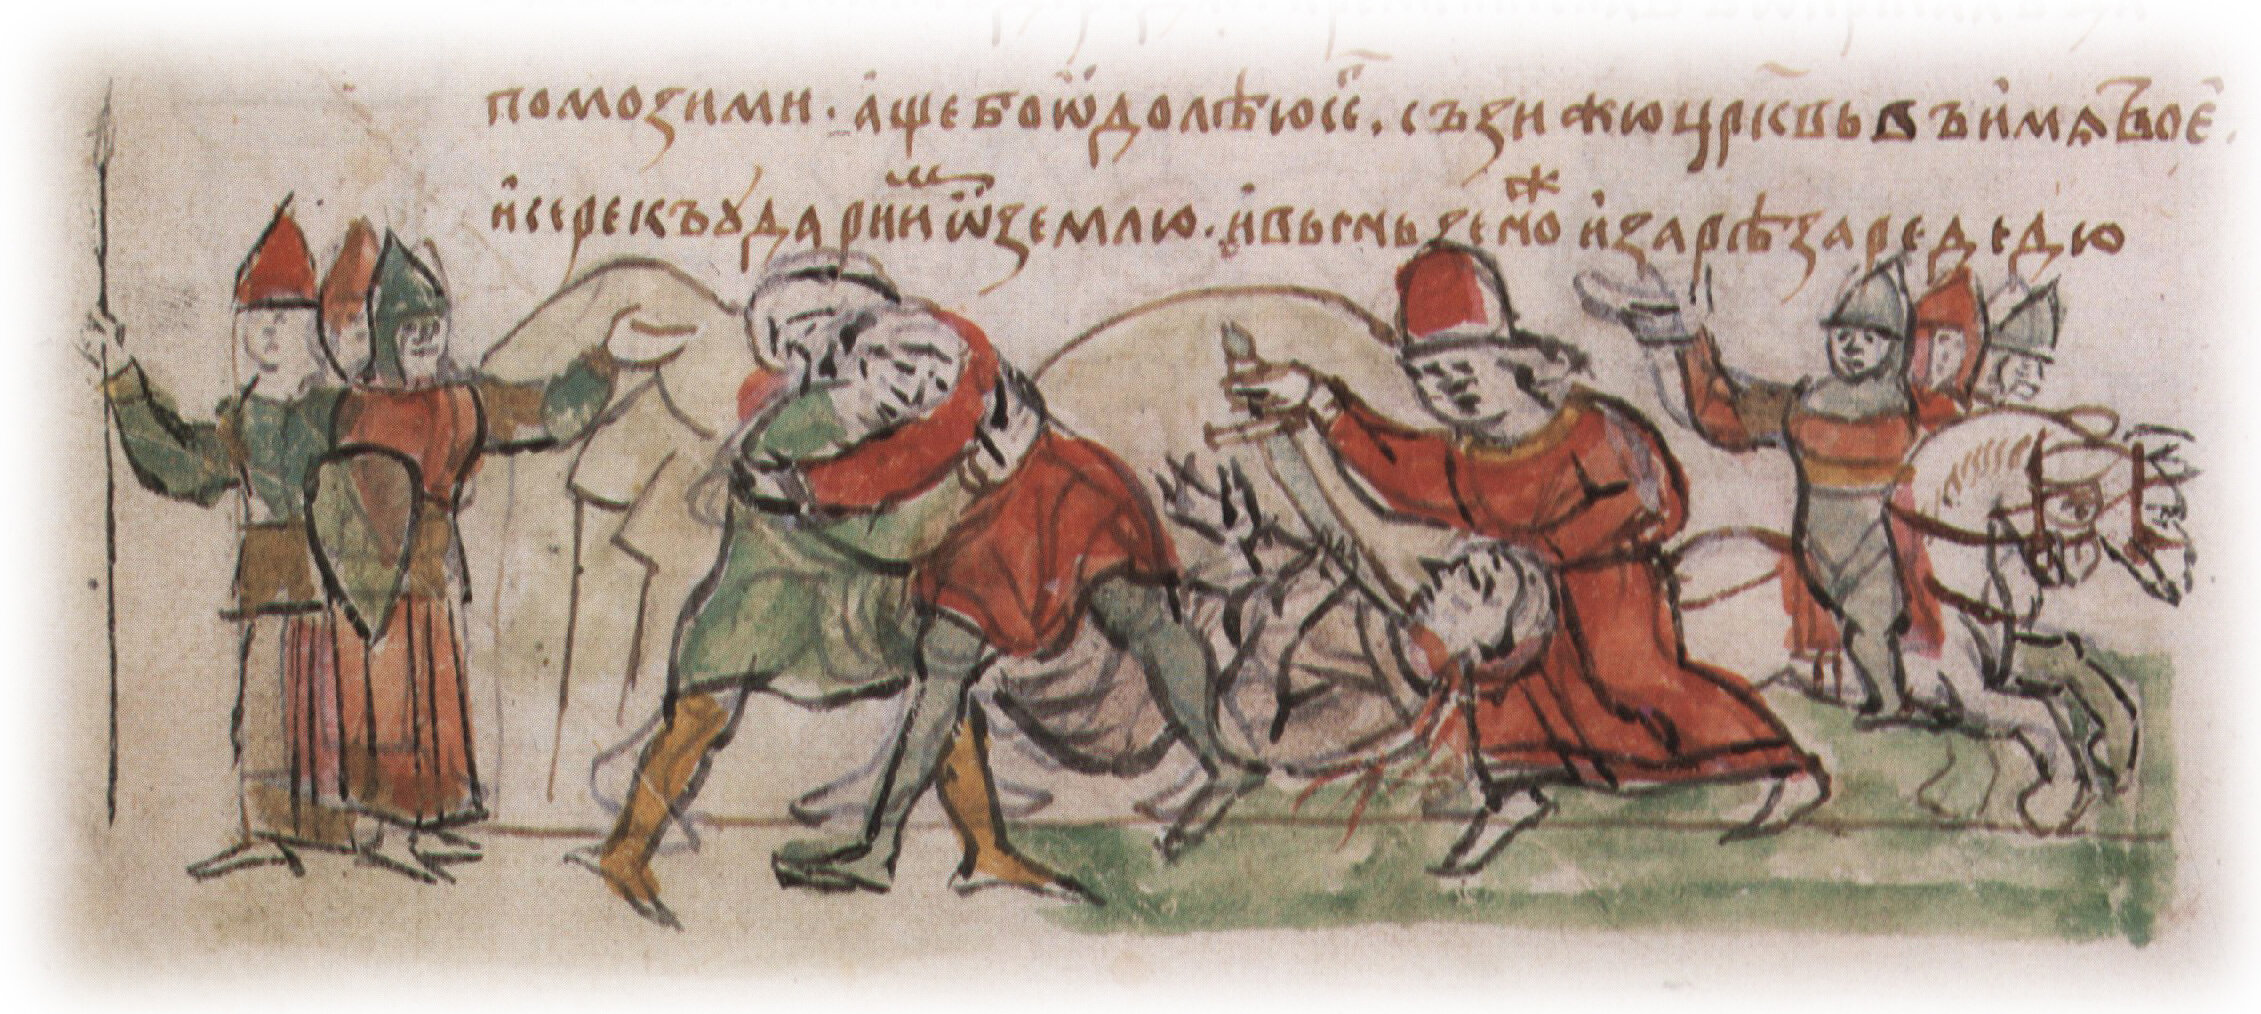 помозими · аще бо ѿдолѣюсе҆ . съзижю цр҃квь въ имѧ твое .
исе рекъ ѹдари им ѿ землю · и вынзь ножь и зарѣза редедю